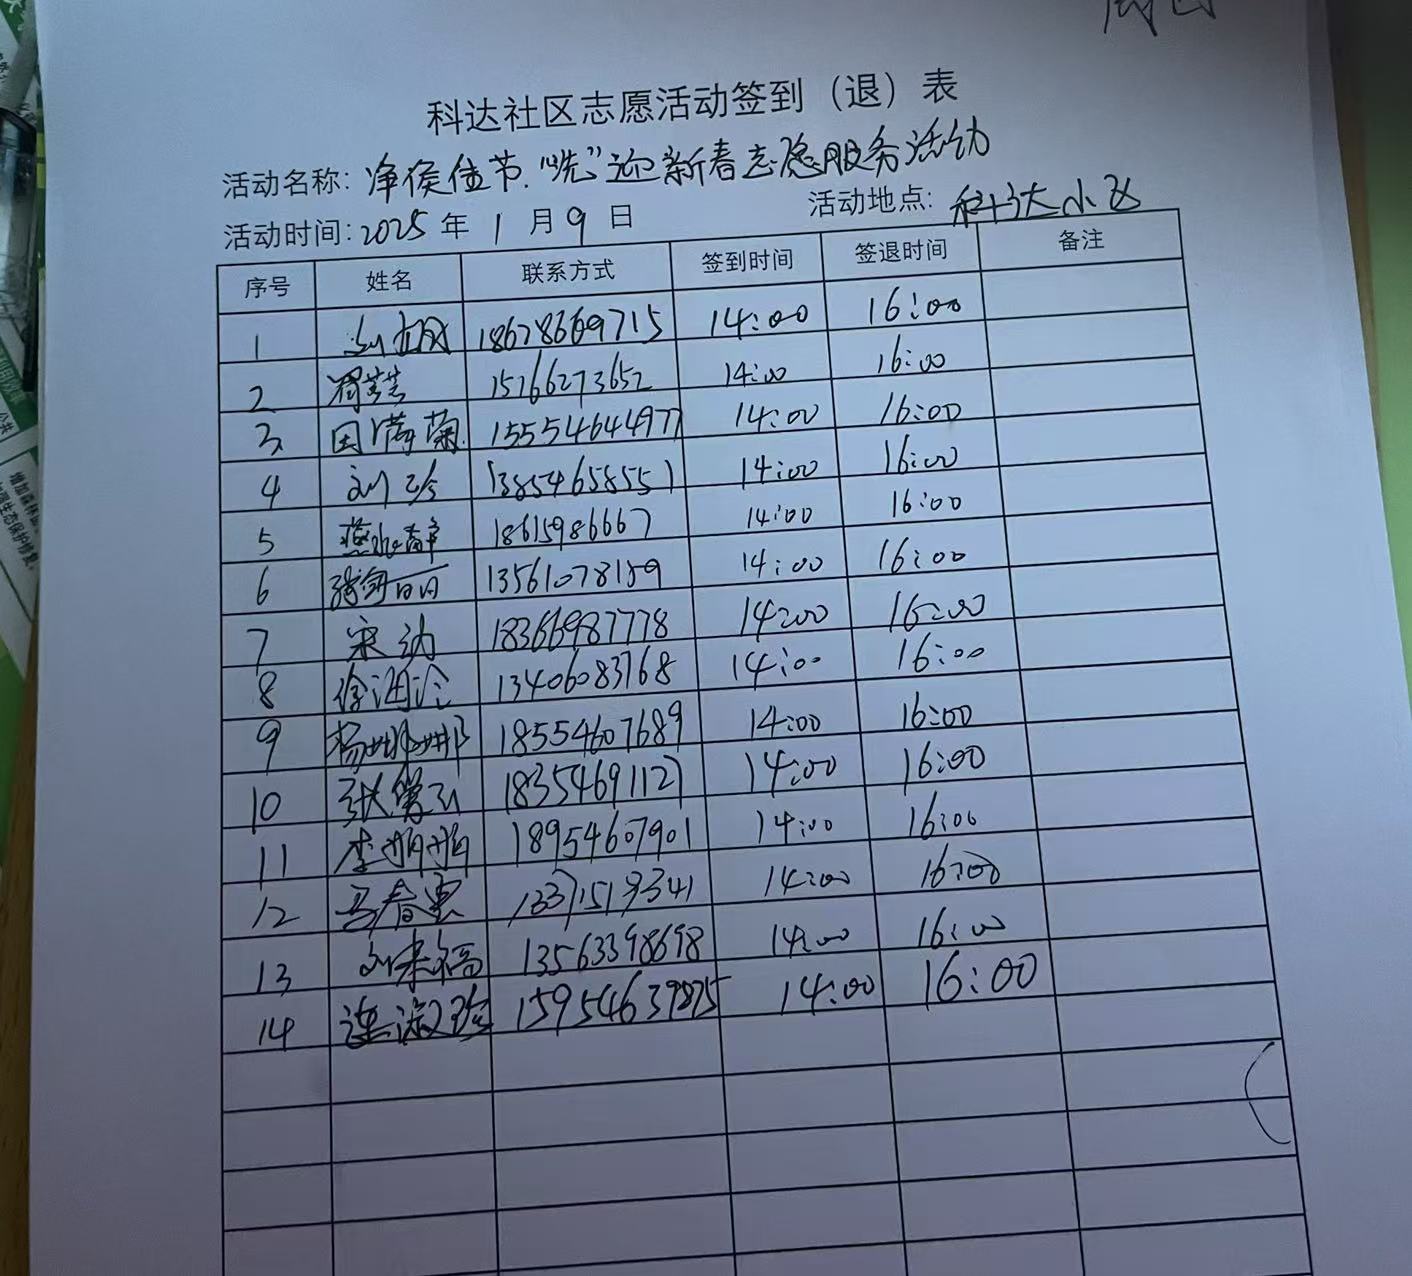 科达社区志愿活动签到（退）表
活动名称: 净候佳节.“洗”迎新春志愿服务活动
活动时间: 2025 年 1 月 9 日 活动地点: 科达小区
序号 姓名 联系方式 签到时间 签退时间 备注
1 18678669715 14:00 16:00
2 15266273652 14:00 16:00
3 田满菊 15554644977 14:00 16:00
4 刘珍 13854658551 14:00 16:00
5 燕 18615986667 14:00 16:00
6 13561078159 14:00 16:00
7 宋 18366987778 14:00 16:00
8 徐 13406083768 14:00 16:00
9 杨娜娜 18554607689 14:00 16:00
10 张 18354691127 14:00 16:00
11 李娟娟 18954607901 14:00 16:00
12 马春 13371519341 14:00 16:00
13 刘来福 13563398698 14:00 16:00
14 连淑珍 15954639875 14:00 16:00